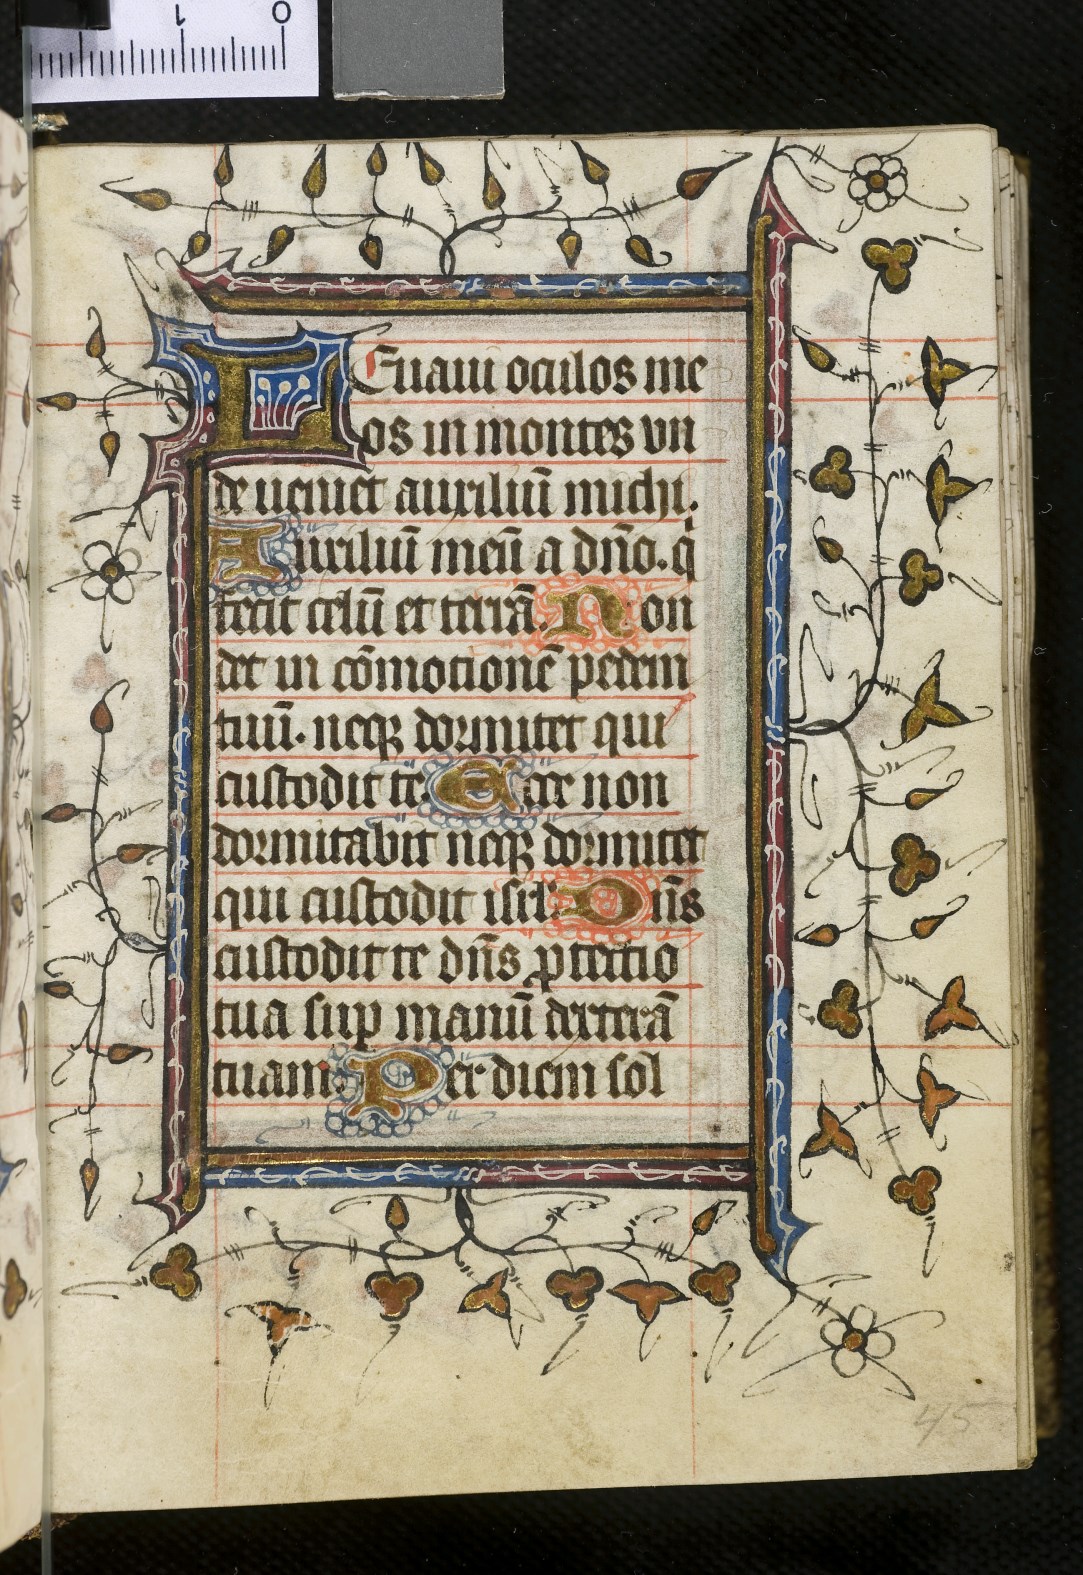 1 0
LEuaui oculos me
os in montes vn
de ueniet auxiliū michi.
Auxiliū meū a dn̄o. q̇
fecit celū et terrā. Non
det in cōmotionē pedem
tuū. neqꝫ dormitet qui
custodit te Ecce non
dormitabit neqꝫ dormitet
qui custodit isrl̄. Dn̄s
custodit te dn̄s ꝓtectio
tua sup manū dexterā
tuam. Per diem sol
45